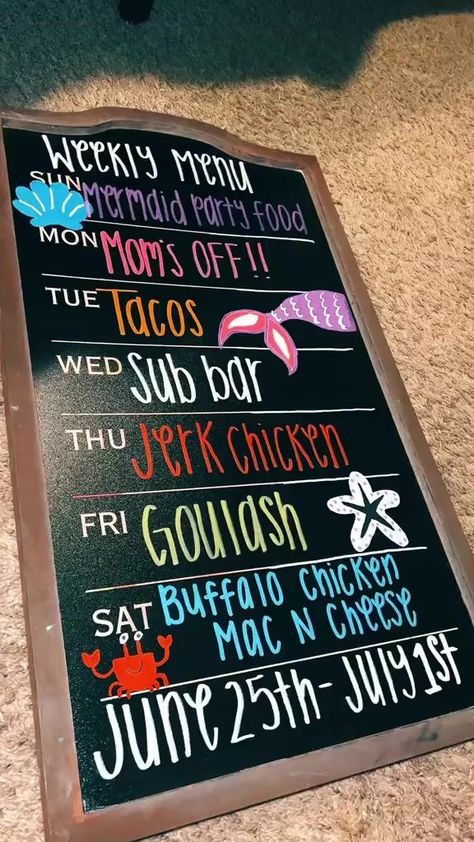 Weekly Menu
SUN Mermaid party food
MON Mom's OFF!!
TUE Tacos
WED Sub bar
THU Jerk Chicken
FRI Goulash
SAT Buffalo Chicken
Mac N Cheese
June 25th - July 1st